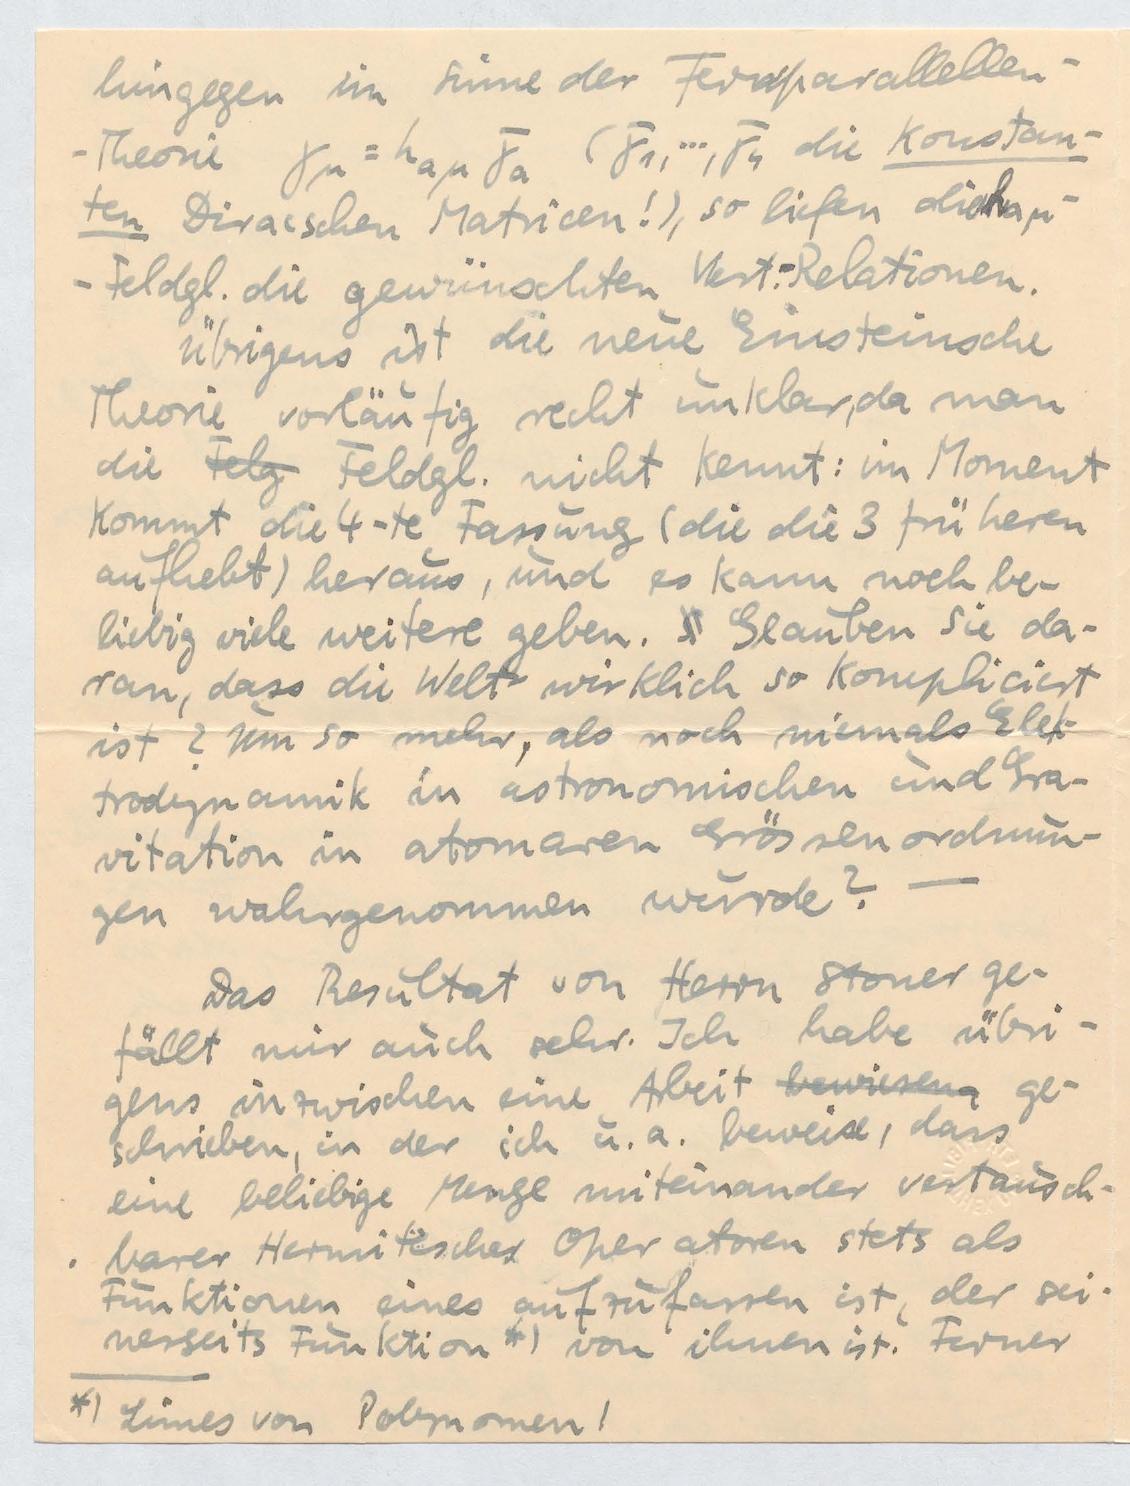 hingegen im Sinne der Fernparallellen-
-Theorie γμ = haμ γ̄a (γ̄1,...,γ̄4 die Konstan-
ten Diracschen Matricen!), so liefen die haμ-
-Feldgl. die gewünschten Vert.-Relationen.
Übrigens ist die neue Einsteinsche
Theorie vorläufig recht unklar, da man
die Felg Feldgl. nicht kennt: im Moment
kommt die 4-te Fassung (die die 3 früheren
aufhebt) heraus, und es kann noch be-
liebig viele weitere geben. Glauben Sie da-
ran, dass die Welt wirklich so kompliciert
ist? Um so mehr, als noch niemals Elek-
trodynamik in astronomischen und Gra-
vitation in atomaren Grössenordnun-
gen wahrgenommen wurde? —
Das Resultat von Herrn Stoner ge-
fällt mir auch sehr. Ich habe übri-
gens inzwischen eine Arbeit bewiesen ge-
schrieben, in der ich u. a. beweise, dass
eine beliebige Menge miteinander vertausch-
barer Hermitescher Operatoren stets als
Funktionen eines aufzufassen ist, der sei-
nerseits Funktion *) von ihnen ist. Ferner
*) Limes von Polynomen!